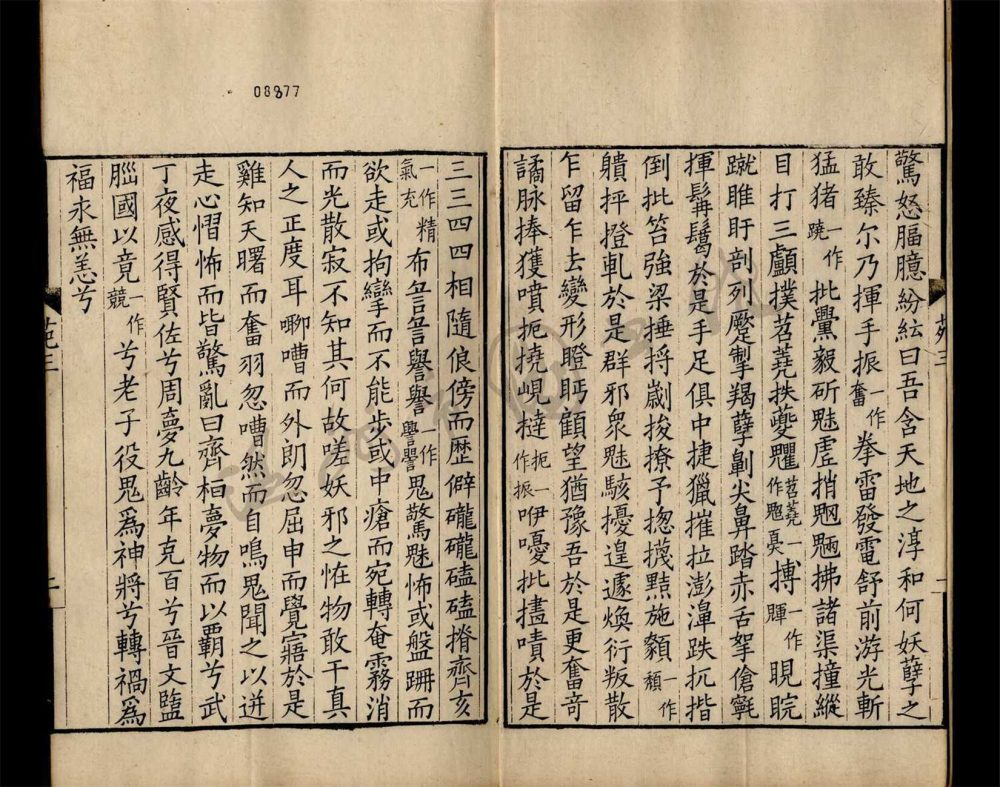 08977
驚怒腷臆紛紜曰吾含天地之淳和何妖孽之
敢臻尔乃揮手振一作奮拳雷發電舒前游光斬
猛猪一作蹺批㸑毅斫魅虛捎魍魎拂諸渠撞縱
目打三顱撲苕蕘抶夔瞿苕蕘一作䰯㚑搏一作睴睍睆
蹴睢盱剖列蹷掣羯孽劓尖鼻踏赤舌挐傖𩭤
揮髯鬄於是手足俱中捷獵摧拉澎濞跌抏揩
倒批笞強梁捶捋劌捘撩予揔攇㸃施纇一作頯
䫴抨撜軋於是群邪眾魅駭擾遑遽煥衍叛散
乍留乍去變形瞪眄顧望猶豫吾於是更奮奇
譎脉捧獲噴扼撓峴撻扼一作振咿嚘批㩉嘖於是
三三四四相隨俍傍而歴僻礲礲磕磕搚齊亥
一作精氣充布䚯䚯譽譽一作譻譻鬼驚魅怖或盤跚而
欲走或拘攣而不能步或中瘡而宛轉奄霧消
而光散寂不知其何故嗟妖邪之恠物敢干真
人之正度耳嘞嘈而外朗忽屈申而覺寤於是
雞知天曙而奮羽忽嘈然而自鳴鬼聞之以迸
走心慴怖而皆驚亂曰齊桓夢物而以霸兮武
丁夜感得賢佐兮周夢九齡年克百兮晉文盬
腦國以竟一作競兮老子役鬼為神將兮轉禍為
福永無恙兮
苑三
一
苑三
二